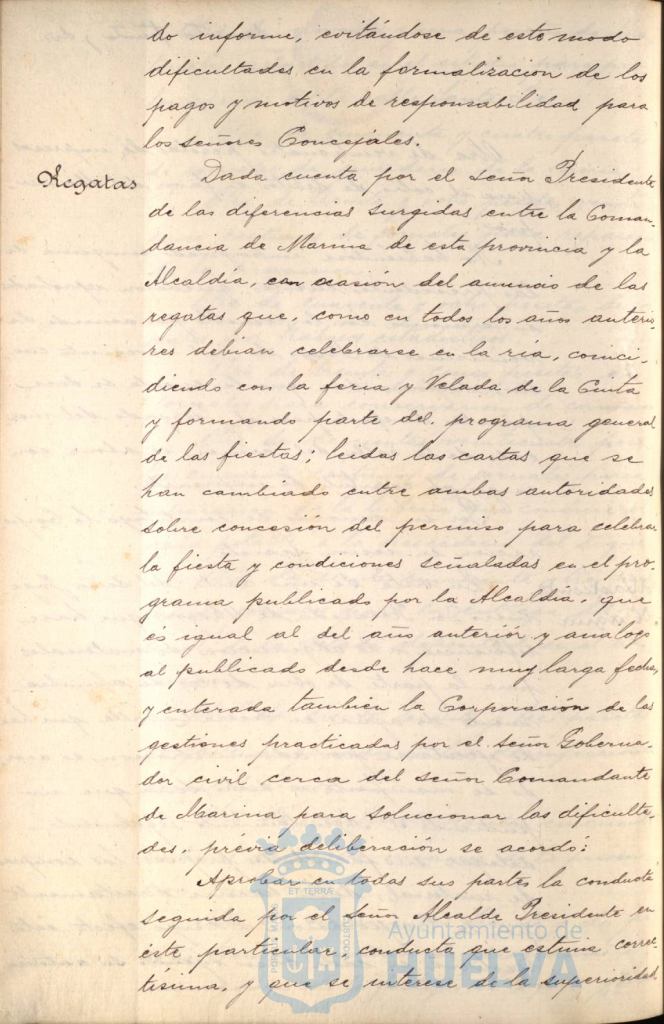 do informe, evitándose de este modo
dificultades en la formalización de los
pagos y motivos de responsabilidad para
los señores Concejales.
Regatas
Dada cuenta por el señor Presidente
de las diferencias surgidas entre la Coman-
dancia de Marina de esta provincia y la
Alcaldía, con ocasión del anuncio de las
regatas que, como en todos los años anterio-
res debian celebrarse en la ría, coinci-
diendo con la feria y Velada de la Cinta
y formando parte del programa general
de las fiestas; leidas las cartas que se
han cambiado entre ambas autoridades
sobre concesión del permiso para celebrar
la fiesta y condiciones señaladas en el pro-
grama publicado por la Alcaldía, que
és igual al del año anteriór y analogo
al publicado desde hace muy larga fecha,
y enterada también la Corporación de las
gestiones practicadas por el señor Goberna-
dor civil cerca del señor Comandante
de Marina para solucionar las dificulta-
des, prévia deliberación se acordó:
Aprobar en todas sus partes la conducta
seguida por el señor Alcalde Presidente en
éste particular, conducta que estima correc-
tísima, y que se interese de la superioridad
ET TERRÆ
PORTUS MARIS
CUSTODIA
Ayuntamiento de
HUELVA